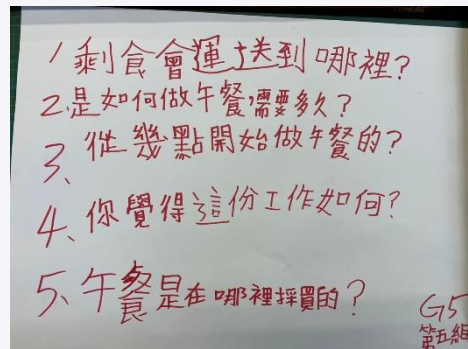 1、剩食會運送到哪裡?
2、是如何做午餐,需要多久?
3、從幾點開始做午餐的?
4、你覺得這份工作如何?
5、午餐是在哪裡採買的?
G5
第五組